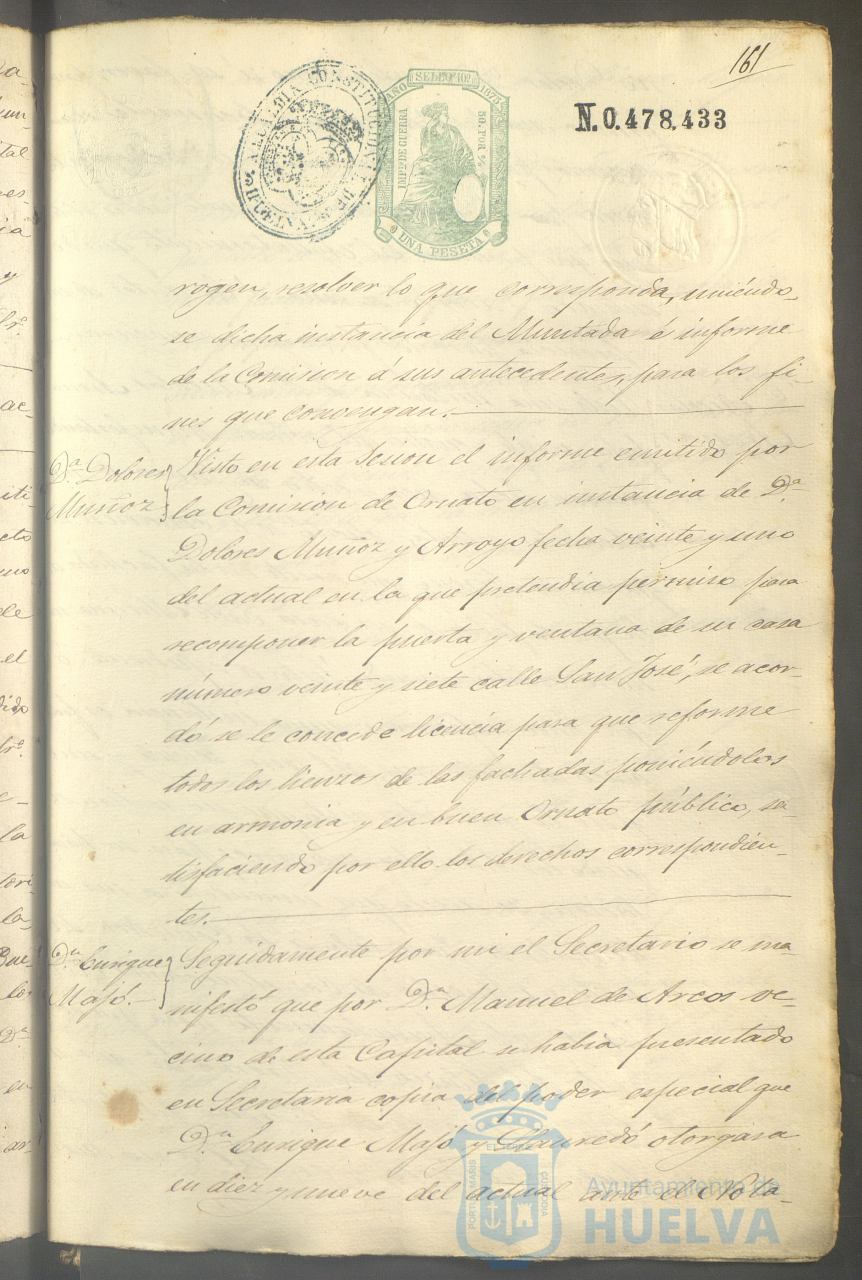 161
AÑO SELLO 10º 1875
IMPTO DE GUERRA
50 POR %
UNA PESETA
ALCALDIA CONSTITUCIONAL DE HUELVA
N.0.478.433
rogen, resolver lo que corresponda, uniéndo-
se dicha instancia del Muntada é informe
de la Comision á sus antecedentes, para los fi-
nes que convengan.
Dª Dolores
Muñoz
Visto en esta Sesion el informe emitido por
la Comision de Ornato en instancia de Dª
Dolores Muñoz y Arroyo fecha veinte y uno
del actual en la que pretendia permiso para
recomponer la puerta y ventana de su casa
número veinte y siete calle San José, se acor-
dó se le concede licencia para que reforme
todos los lienzos de las fachadas poniéndolos
en armonia y en buen Ornato público, sa-
tisfaciendo por ello los derechos correspondien-
tes.
Dn Enrique
Majó.
Seguidamente por mi el Secretario se ma-
nifestó que por Dn Manuel de Arcos ve-
cino de esta Capital se habia presentado
en Secretaria copia del poder especial que
Dn Enrique Majó y Llauredó otorgara
en diez y nueve del actual ante el Nota-
Ayuntamiento de
HUELVA
PORTUS MARIS ET TERRAE CUSTODIA